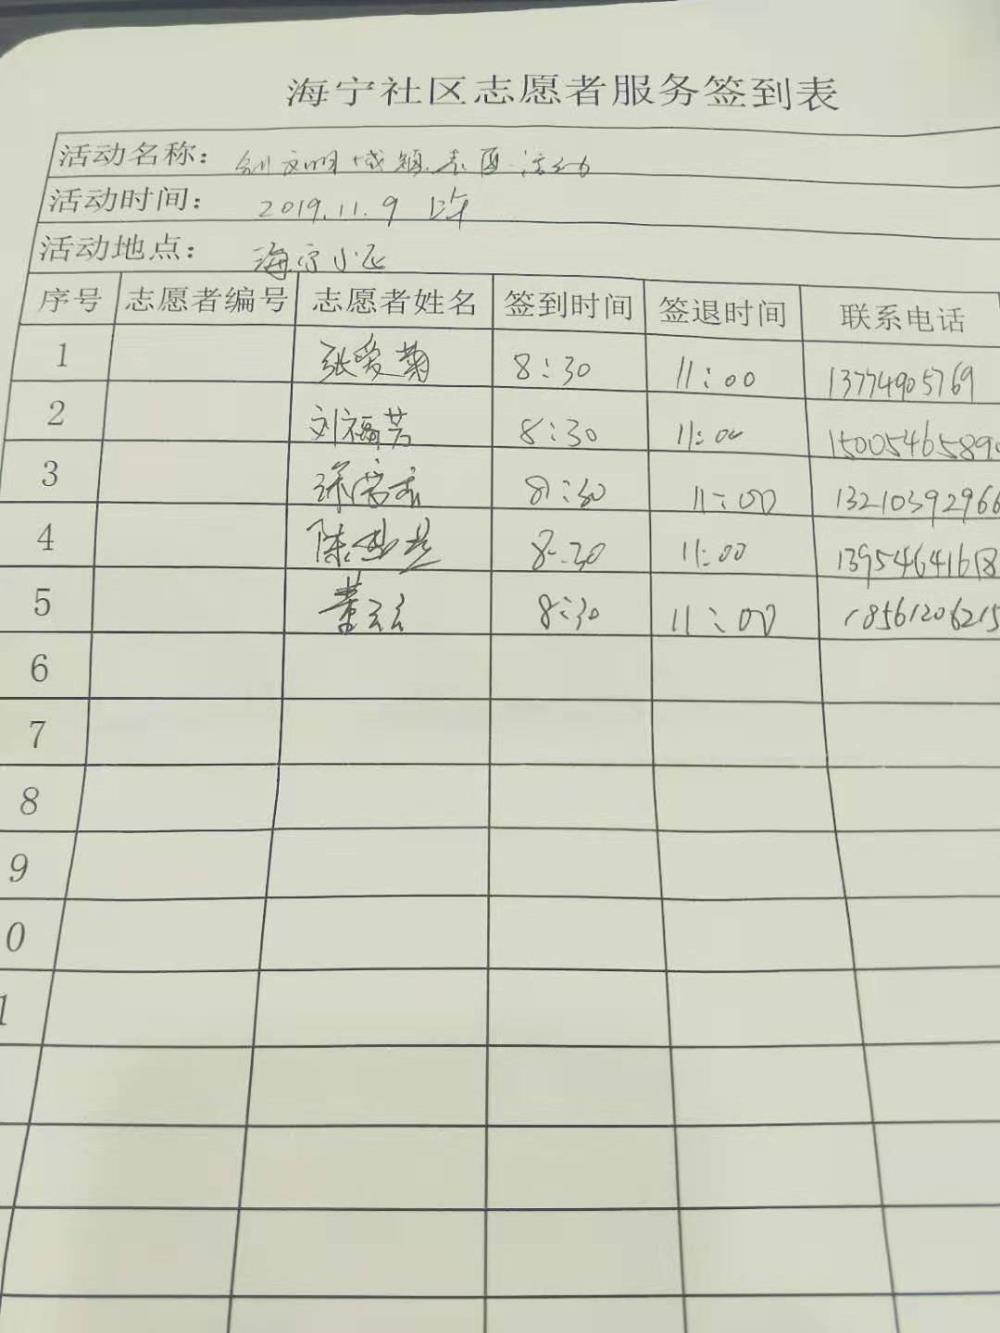 海宁社区志愿者服务签到表
活动名称：创文明城 志愿活动
活动时间：2019.11.9 上午
活动地点：海宁小区
序号 志愿者编号 志愿者姓名 签到时间 签退时间 联系电话
1 张爱菊 8:30 11:00 13774905769
2 刘福芳 8:30 11:00 1500546589
3 8:30 11:00 13210392966
4 陈 8:30 11:00 13954641618
5 董云云 8:30 11:00 1856120621
6
7
8
9
0
1